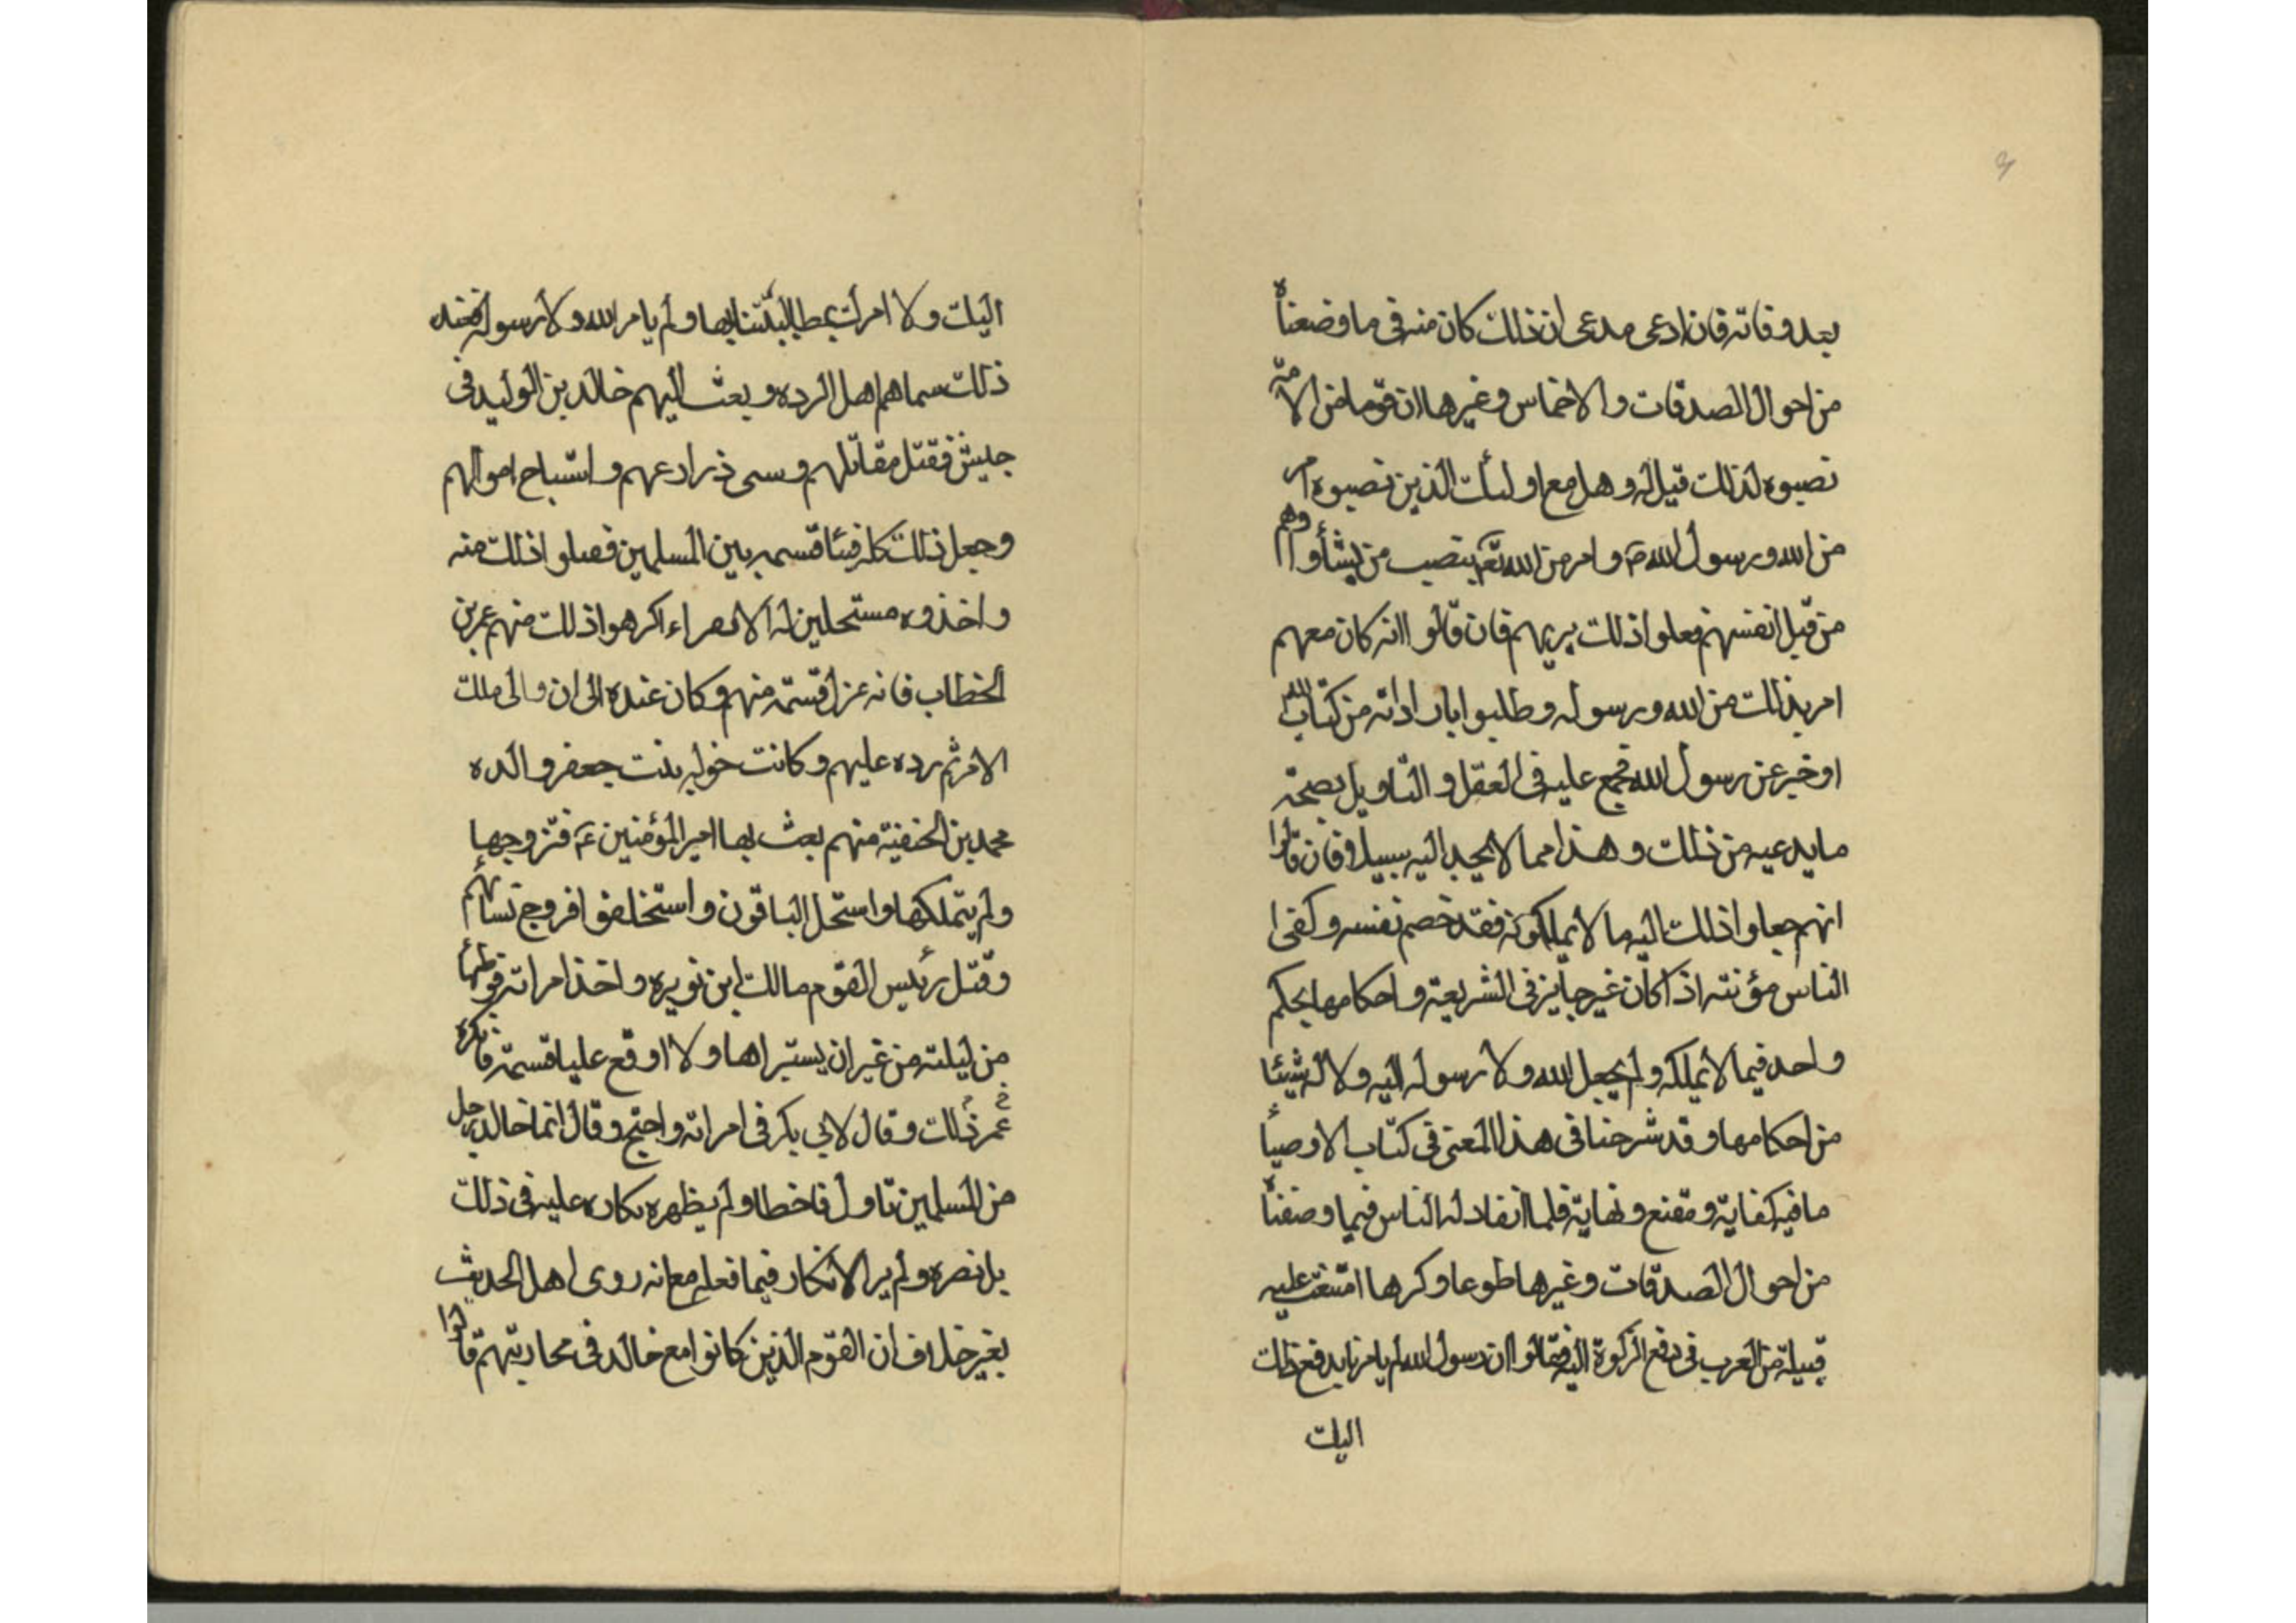 بعد وفاته فان ادعى مدعى ان ذلك كان منه فى ما وضعناه
من احوال الصدقات والاخماس وغيرها ان قوما من الامة
نصبوه لذلك قيل له وهل مع اولئك الذين نصبوه امر
من الله ورسول الله ص وامر من الله تعم بنصب من يشاؤا وهم
من قبل انفسهم فعلوا ذلك برايهم فان قالوا انه كان معهم
امر بذلك من الله ورسوله وطلبوا من كتاب الله
او خبر عن رسول الله مجمع عليه فى العقل والتاويل بصحة
ما يدعيه من ذلك وهذا مما لا يجد اليه سبيلا وفان قالوا
انهم جعلوا ذلك اليه ما لا يملكونه فقد خصم نفسه وكفى
الناس مؤنته اذ اكان غير جايز فى الشريعة واحكامها يحكم
واحد فيما لا يملكه ولم يجعل الله ولا رسوله اليه ولا له شيئا
من احكامها وقد شرحنا فى هذا المعنى فى كتاب الاوصياء
ما فيه كفاية ومقنع ونهاية فلما انقاد له الناس فيما وصفناه
من احوال الصدقات وغيرها طوعا وكرها امتنعت عليه
قبيلة من العرب فى دفع الزكوة اليه فقالوا ان رسول الله لم يامرنا بدفع ذلك
اليك
اليك ولا امرك بمطالبتنا بها ولم يامر الله ولا رسوله فعند
ذلك سماهم اهل الرده وبعث اليهم خالد بن الوليد فى
جيش فقتل مقاتلهم وسبى ذراريهم واستباح اموالهم
وجعل ذلك كله فيئا قسمه بين المسلمين فقبلوا ذلك منه
واخذوه مستحلين له الا نفراء اكرهوا ذلك منهم عمر بن
الخطاب فانه عزل قسمته منهم وكان عنده الى ان والى ملك
الامر ثم رده عليهم وكانت خوله بنت جعفر والده
محمد بن الحنفية منهم بعث بها امير المؤمنين ع فتزوجها
ولم يتملكها واستحل الباقون واستخلفوا فروج نسائهم
وقتل رئيس القوم مالك ابن نويره واخذ امراته فوطئها
من ليلته من غير ان يستبراها ولا اوقع عليها قسمة فانكره
عمر ذلك وقال لابى بكر فى امراته واحتج وقال انما خالد رجل
من المسلمين تاول فاخطا ولم يظهره نكاره عليه فى ذلك
بل نصره ولم ير الانكار فيما فعله مع انه روى اهل الحديث
بغير خلاف ان القوم الذين كانوا مع خالد فى محاربتهم قالوا